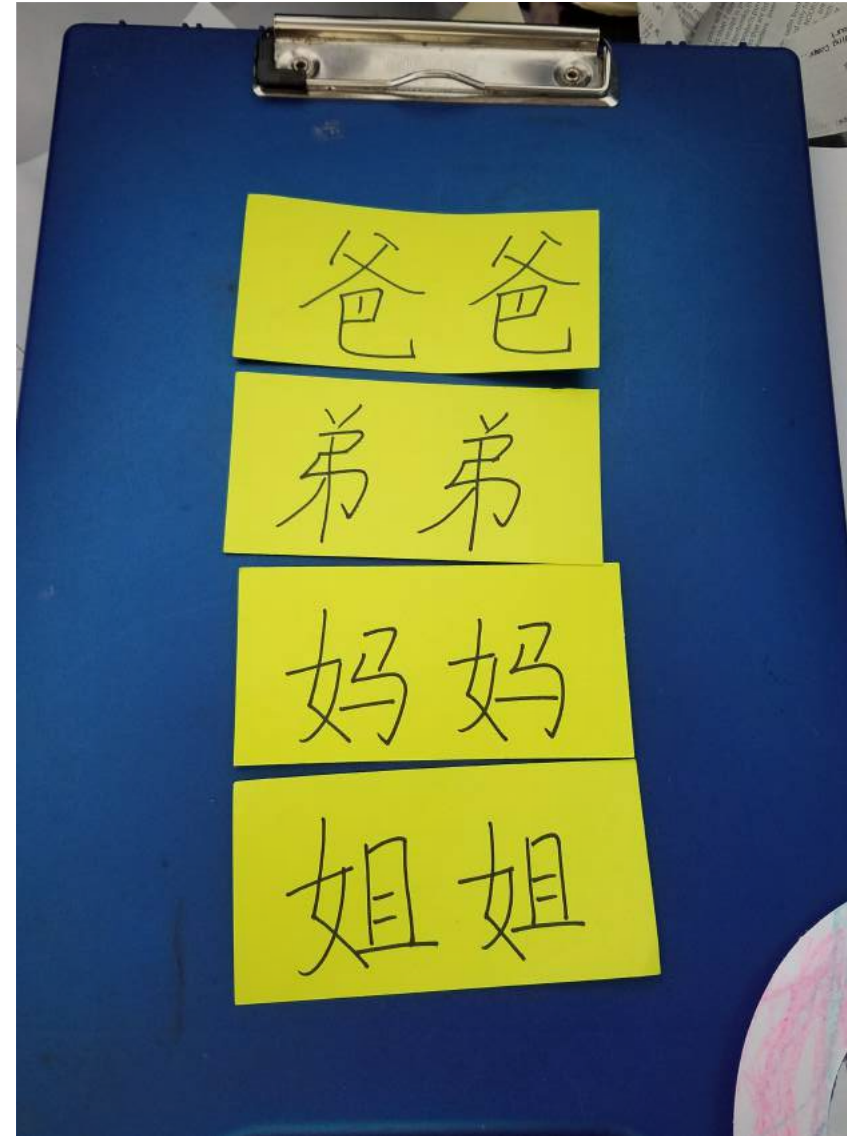 爸爸
弟弟
妈妈
姐姐